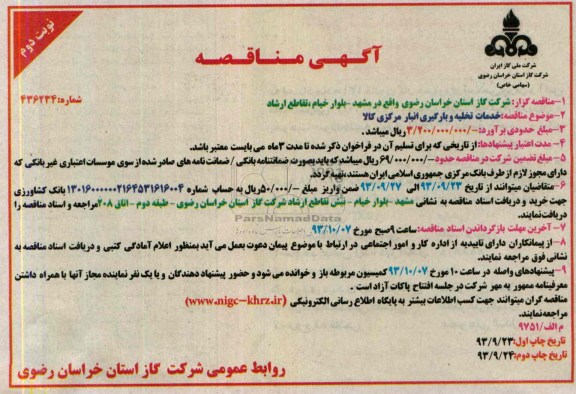 نوبت دوم
شرکت ملی گاز ایران
شرکت گاز استان خراسان رضوی
(سهامی خاص)
آگهی مناقصه
شماره:۴۳۶۲۳۴
۱-مناقصه گزار: شرکت گاز استان خراسان رضوی واقع در مشهد -بلوار خیام ،تقاطع ارشاد
۲-موضوع مناقصه:خدمات تخلیه و بارگیری انبار مرکزی کالا
۳-مبلغ حدودی برآورد: ۳/۲۰۰/۰۰۰/۰۰۰/- ریال میباشد .
۴- مدت اعتبار پیشنهادها: از تاریخی که برای تسلیم آن در فراخوان ذکر شده تا مدت ۳ ماه می بایست معتبر باشد.
۵-مبلغ تضمین شرکت در مناقصه حدود -/۶۹/۰۰۰/۰۰۰ ریال میباشد که باید بصورت ضمانتنامه بانکی / ضمانت نامه های صادر شده از سوی موسسات اعتباری غیر بانکی که
دارای مجوز لازم از طرف بانک مرکزی جمهوری اسلامی ایران هستند،تهیه گردد.
۶-متقاضیان میتوانند از تاریخ ۹۳/۰۹/۲۳ الی ۹۳/۰۹/۲۷ ضمن واریز مبلغ -/۵۰۰/۰۰۰ریال به حساب شماره ۰۱۳۰۱۶۰۰۰۰۰۰۲۱۶۴۵۳۱۶۱۶۰۰۴ بانک کشاورزی
جهت خرید و دریافت اسناد مناقصه به نشانی مشهد -بلوار خیام - نبش تقاطع ارشاد شرکت گاز استان خراسان رضوی - طبقه دوم -اتاق ۲۰۸مراجعه و اسناد مناقصه را
دریافت نمایند.
۷- آخرین مهلت بازگرداندن اسناد مناقصه: ساعت ۹صبح مورخ ۹۳/۱۰/۰۷
۸-از پیمانکاران دارای تاییدیه از اداره کار و امور اجتماعی در ارتباط با موضوع پیمان دعوت بعمل می آید بمنظور اعلام آمادگی کتبی و دریافت اسناد مناقصه به
نشانی فوق مراجعه نمایند.
۹-پیشنهادهای واصله در ساعت ۱۰ مورخ ۹۳/۱۰/۰۷کمیسیون مربوطه باز و خوانده می شود و حضور پیشنهاد دهندگان و یا یک نفر نماینده مجاز آنها با همراه داشتن
معرفینامه ممهور به مهر شرکت در جلسه افتتاح پاکات آزاد است .
مناقصه گران میتوانند جهت کسب اطلاعات بیشتر به پایگاه اطلاع رسانی الکترونیکی (www.nigc-khrz.ir)
مراجعه نمایند.
م الف/۹۷۵۱
تاریخ چاپ اول:۹۳/۹/۲۳
تاریخ چاپ دوم:۹۳/۹/۲۴
روابط عمومی شرکت گاز استان خراسان رضوی
ParsNamadData